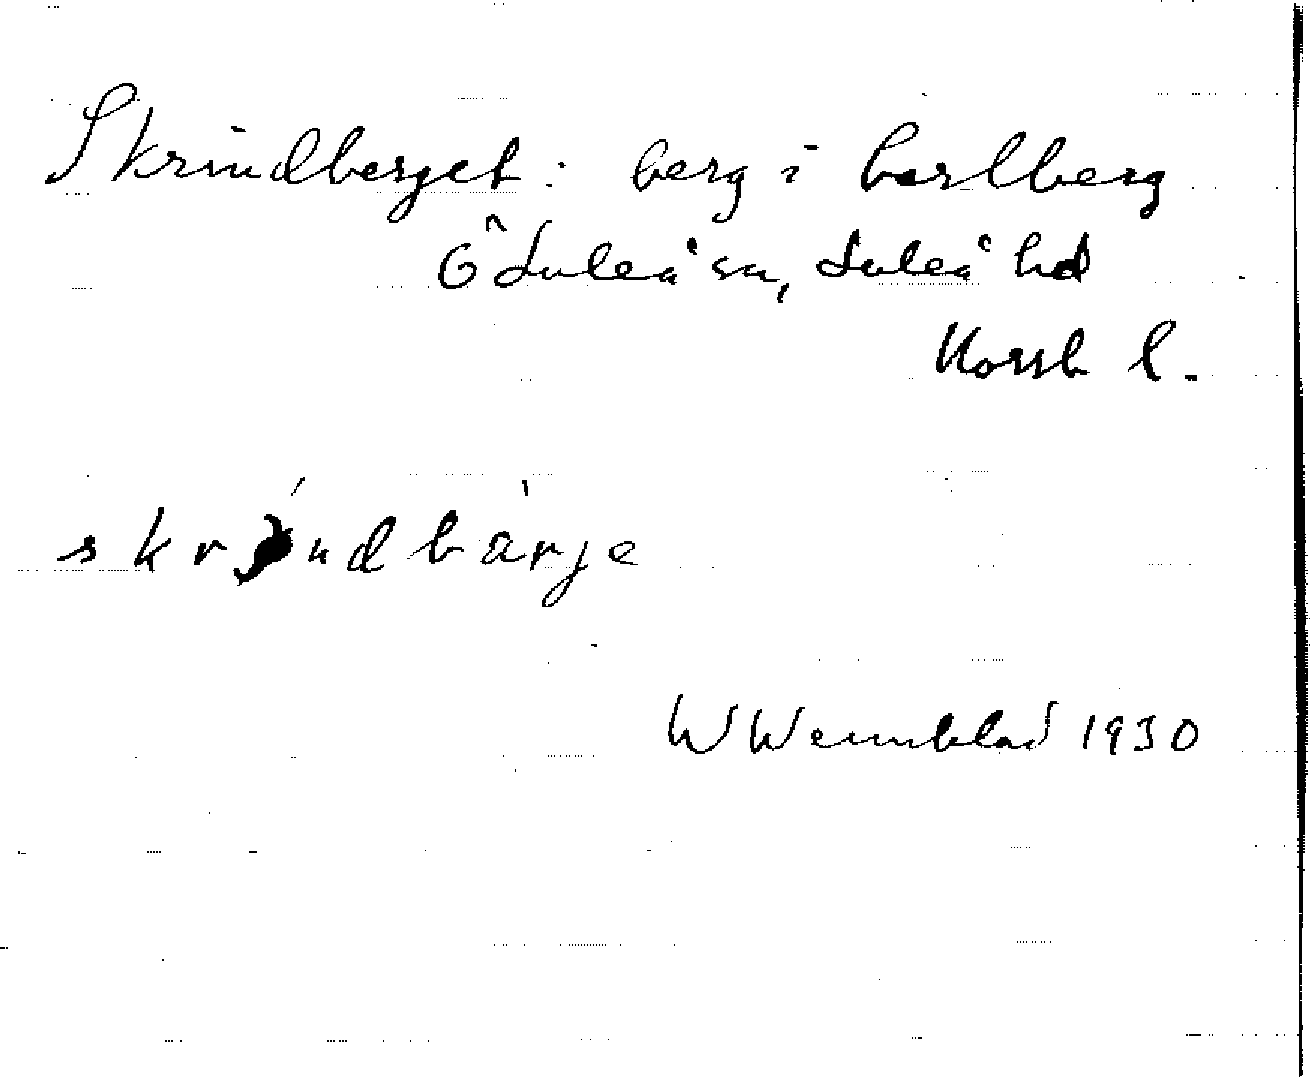 Skrindberget: berg i Karlberg
Ö Luleå sn, Luleå hd
Norrb l.
skrindbärje
W Wennblad 1930